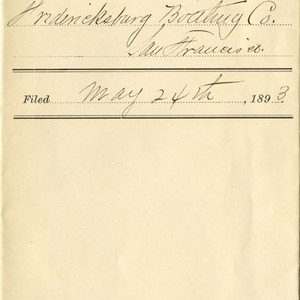 Fredericksburg Bottling Co.
San Francisco.
Filed May 24th, 1893